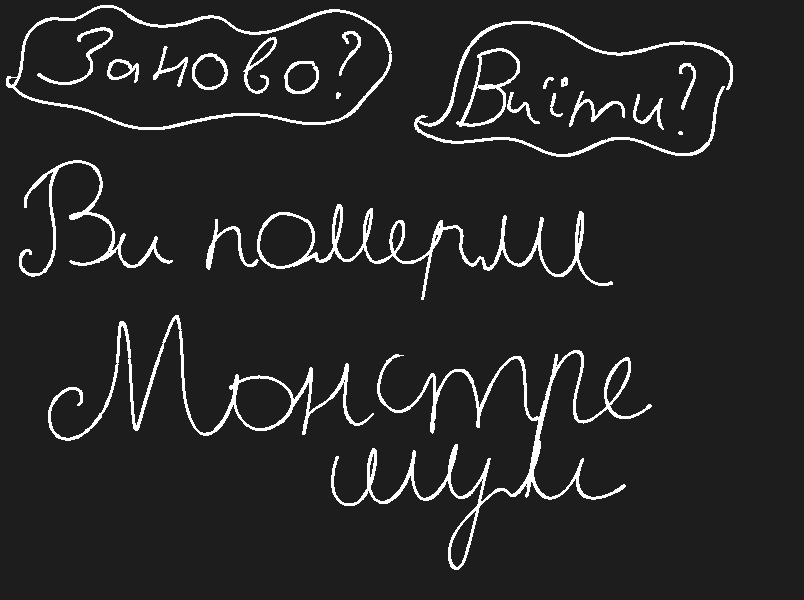 Заново? Виїти?
Ви померли
Монстре